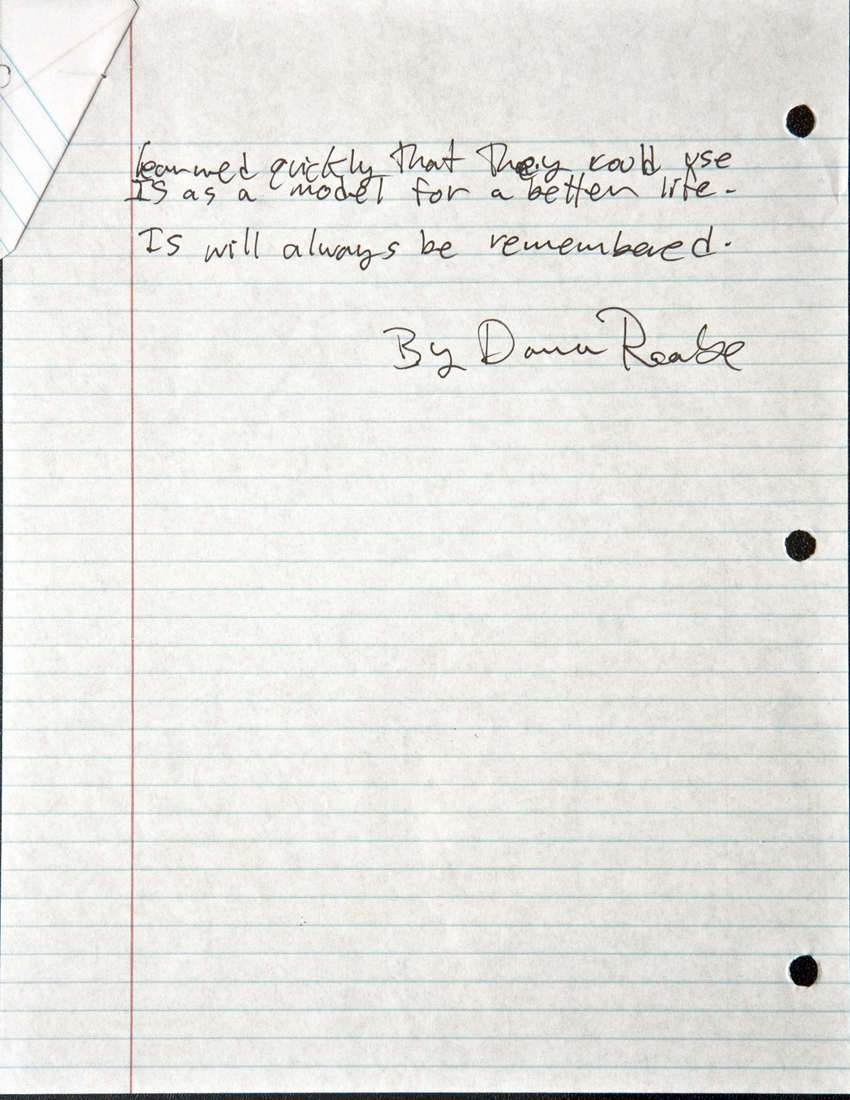 learned quickly that they could use
IS as a model for a better life.
IS will always be remembered.
By Dana Raabe